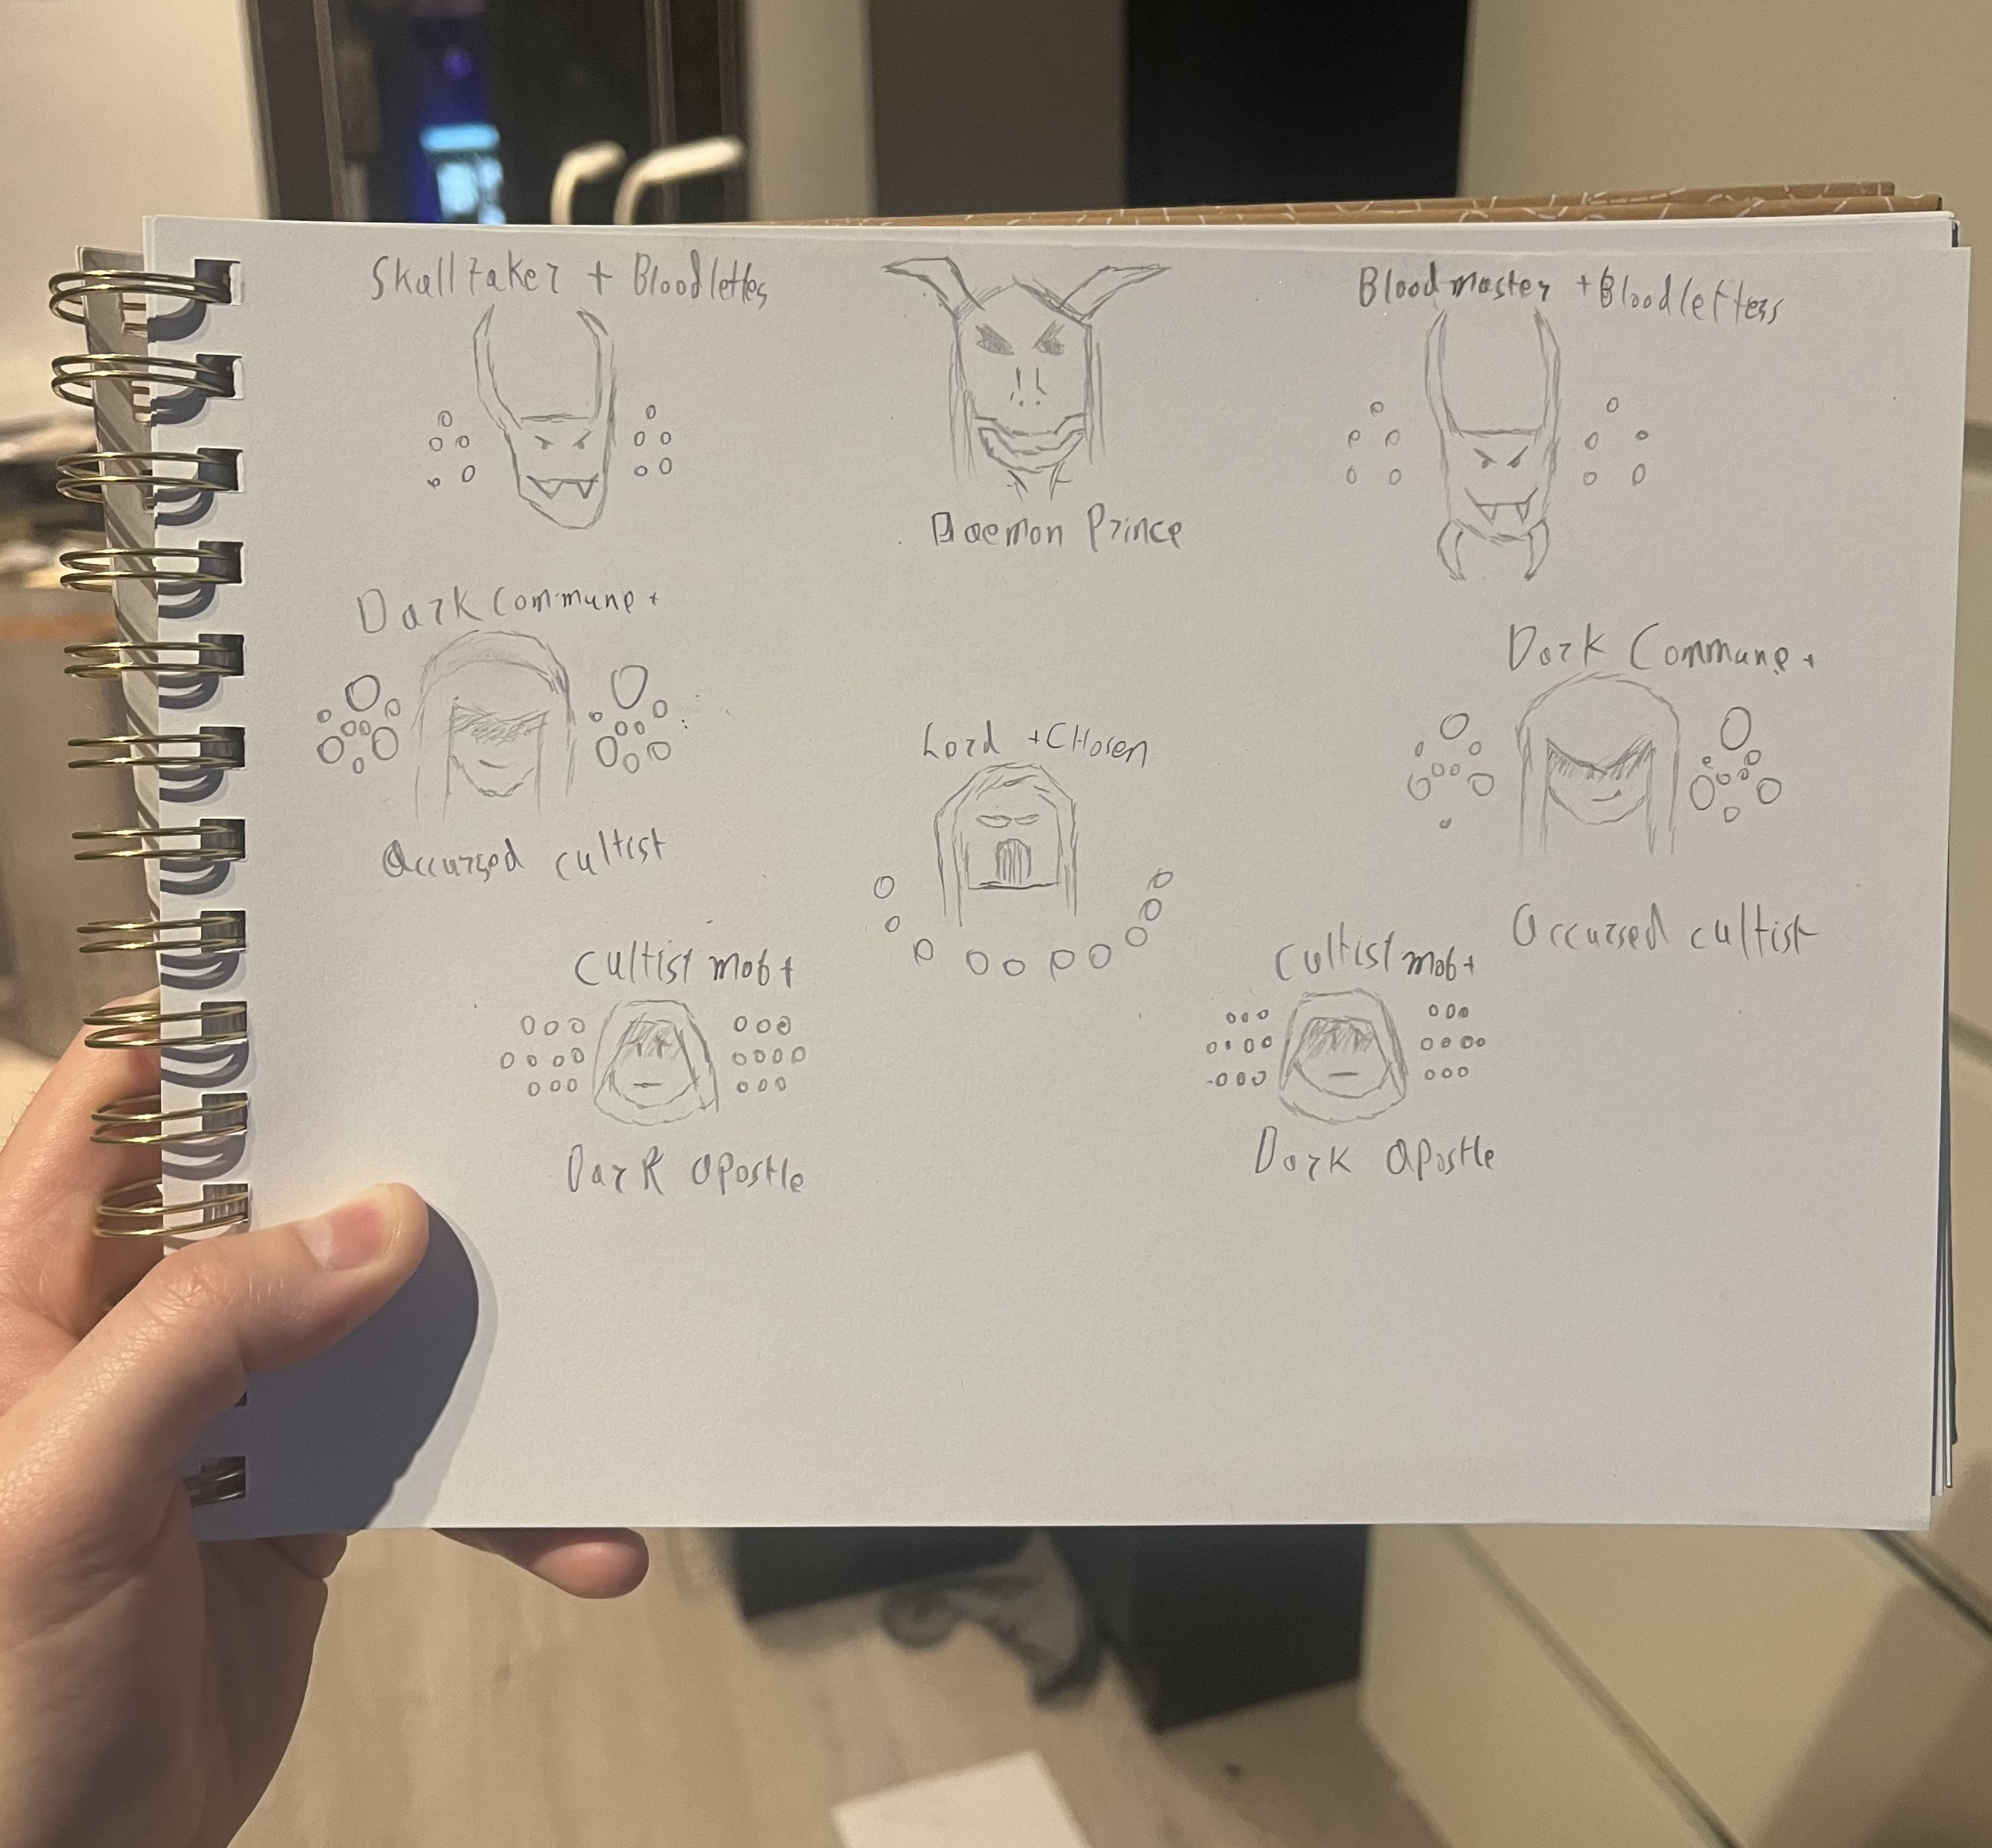 Skalltaker + Bloodletters
Daemon Prince
Bloodmaster + Bloodletters
Dark Commune +
Accursed cultist
Lord + CHosen
Dark Commune +
Accursed cultist
Cultist mob +
Dark Apostle
Cultist mob +
Dark Apostle